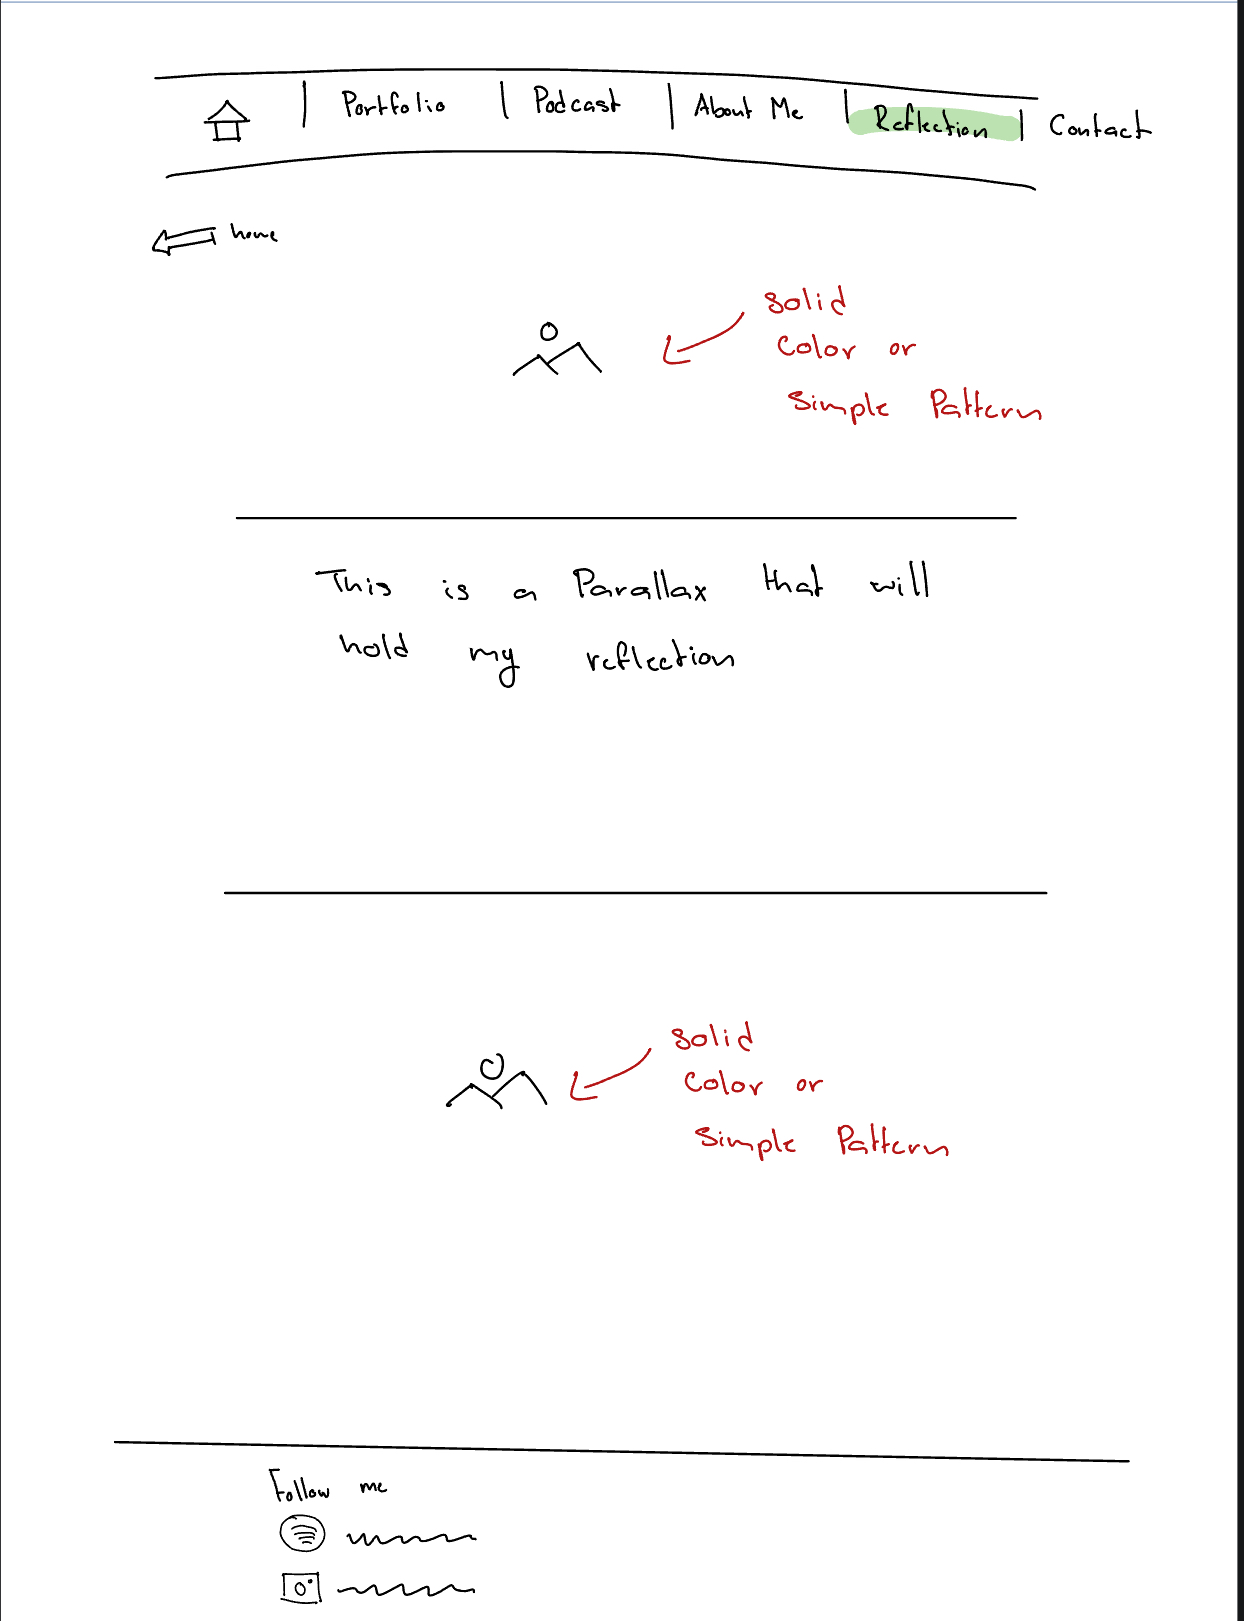 Portfolio | Podcast | About Me | Reflection | Contact
home
Solid
Color or
Simple Pattern
This is a Parallax that will
hold my reflection
Solid
Color or
Simple Pattern
Follow me